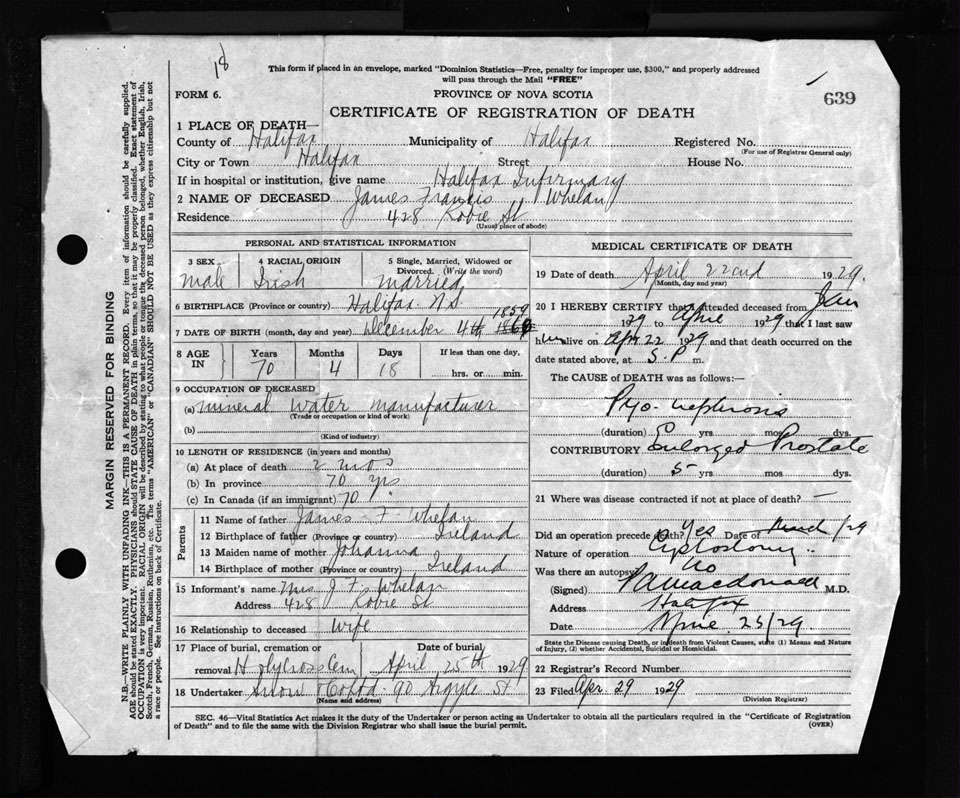 18
This form if placed in an envelope, marked "Dominion Statistics—Free, penalty for improper use, $300," and properly addressed
will pass through the Mail "FREE"
FORM 6.
PROVINCE OF NOVA SCOTIA
639
CERTIFICATE OF REGISTRATION OF DEATH
1 PLACE OF DEATH—
County of Halifax Municipality of Halifax Registered No.
(For use of Registrar General only)
City or Town Halifax Street House No.
If in hospital or institution, give name Halifax Infirmary
2 NAME OF DECEASED James Francis Whelan
Residence 428 Robie St
(Usual place of abode)
PERSONAL AND STATISTICAL INFORMATION
3 SEX male
4 RACIAL ORIGIN Irish
5 Single, Married, Widowed or
Divorced. (Write the word)
married
6 BIRTHPLACE (Province or country) Halifax N.S.
1859
7 DATE OF BIRTH (month, day and year) December 4th 1860
8 AGE IN Years 70 Months 4 Days 18 If less than one day,
hrs. or min.
9 OCCUPATION OF DECEASED
(a) mineral water manufacturer
(Trade or occupation or kind of work)
(b)
(Kind of industry)
10 LENGTH OF RESIDENCE (in years and months)
(a) At place of death 2 mos
(b) In province 70 yrs
(c) In Canada (if an immigrant) 70 "
Parents
11 Name of father James F Whelan
12 Birthplace of father (Province or country) Ireland
13 Maiden name of mother Johanna
14 Birthplace of mother (Province or country) Ireland
15 Informant's name Mrs J F Whelan
Address 428 Robie St
16 Relationship to deceased wife
17 Place of burial, cremation or Date of burial
removal Holy Cross Cem April 25th 1929
18 Undertaker Snow & Co Ltd. 90 Argyle St
(Name and address)
MEDICAL CERTIFICATE OF DEATH
19 Date of death April 22nd 1929.
(Month, day and year)
20 I HEREBY CERTIFY that I attended deceased from Jan
1929 to April 1929 that I last saw
him alive on Apr 22 1929 and that death occurred on the
date stated above, at 5. P m.
The CAUSE OF DEATH was as follows:—
Pyo-nephrosis
(duration) yrs mos dys.
CONTRIBUTORY Enlarged Prostate
(duration) 5 yrs mos dys.
21 Where was disease contracted if not at place of death? —
Did an operation precede death? Yes Date of March /29
Nature of operation Cystostomy
Was there an autopsy? No
(Signed) Macdonald M.D.
Address Halifax
Date April 25/29
State the Disease causing Death, or in death from Violent Causes, state (1) Means and Nature
of Injury, (2) whether Accidental, Suicidal or Homicidal.
22 Registrar's Record Number
23 Filed Apr. 29 1929
(Division Registrar)
SEC. 46—Vital Statistics Act makes it the duty of the Undertaker or person acting as Undertaker to obtain all the particulars required in the "Certificate of Registration
of Death" and to file the same with the Division Registrar who shall issue the burial permit.
(OVER)
MARGIN RESERVED FOR BINDING
N.B.—WRITE PLAINLY WITH UNFADING INK—THIS IS A PERMANENT RECORD. Every item of information should be carefully supplied.
AGE should be stated EXACTLY. PHYSICIANS should STATE CAUSE OF DEATH in plain terms, so that it may be properly classified. Exact statement of
OCCUPATION is very important. RACIAL ORIGIN will be described by stating to what people or tongue the deceased person belonged, whether English, Irish,
Scotch, French, German, Russian, Ruthenian, etc. The terms "AMERICAN" or "CANADIAN" SHOULD NOT BE USED as they express citizenship but not
a race or people. See instructions on back of Certificate.